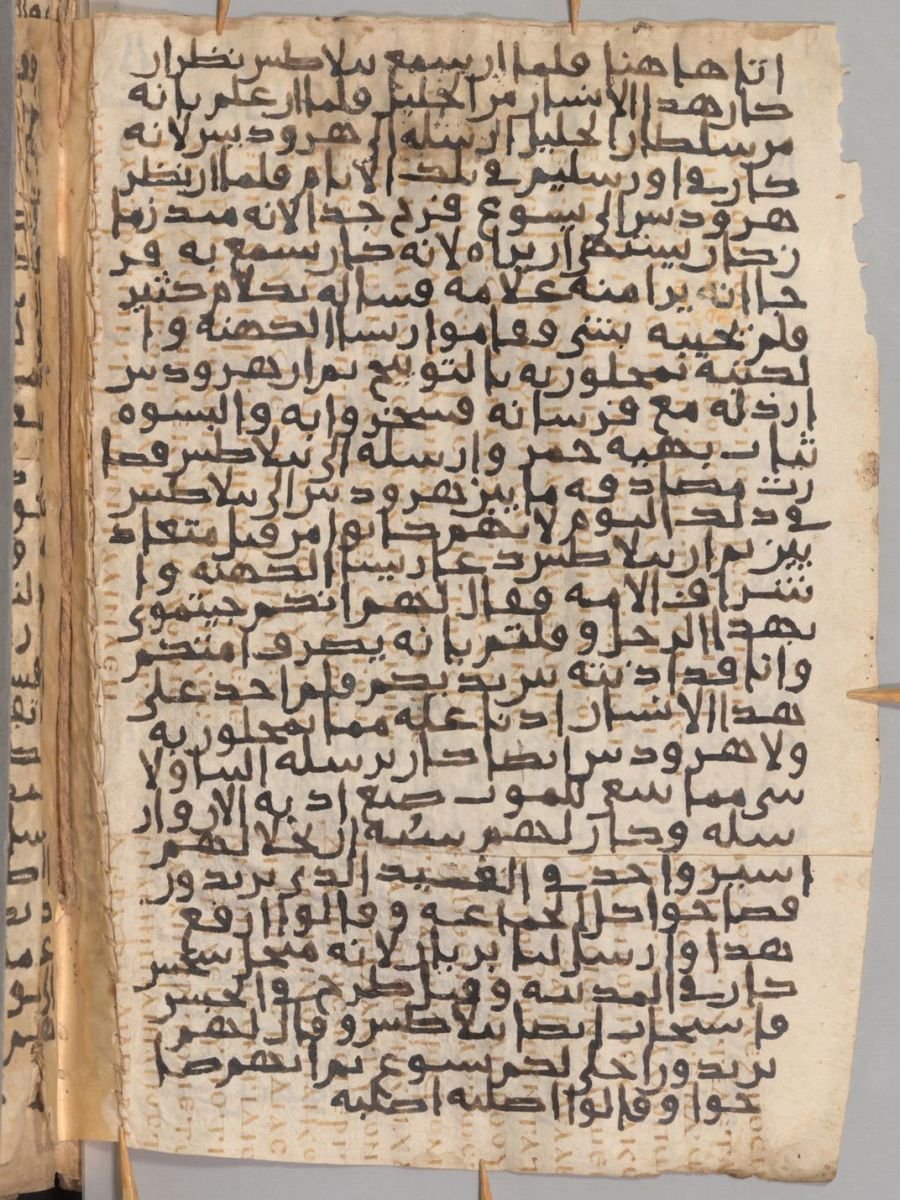 اتا هاهنا فلما ان سمع بيلاطس نظر ان
كان هذا الانسان من الجليل فلما ان علم بانه
من سلطان الجليل ارسله الى هرودس لانه
كان في اورسليم في تلك الايام فلما ان نظر
هرودس الى يسوع فرح جدا لانه منذ زما
ن كان يشتهي ان يراه لانه كان يسمع به فر
جا انه يرا منه علامه فساله بكلام كثير
فلم يجيبه بشي وقاموا ريسا الكهنه و ا
لكتبه يمحلون به بالتوبيخ ثم ان هرودس
ارذله مع فرسانه فسخروا به والبسوه
ثياب بهيه حمر وارسله الى بيلاطس فصا
رت مصادقه ما بين هرودس الى بيلاطس
في ذلك اليوم لانهم كانوا من قبل متعاد
يين ثم ان بيلاطس دعا ريسا الكهنه و ا
شراف الامه فقال لهم انكم جيتموني
بهذا الرجل وقلتم بانه يصرف امتكم
وانا قد اذنته بين يديكم فلم اجد على
هذا الانسان ادنا عله مما تمحلون به
ولا هرودس ايضا كان يرسله الينا ولا
شي مما يسوي للموت صنع ادبه الان وار
سله وكان لهم سنه ان يخلا لهم
اسير واحد في الفسيد الذي يريدون
فصاحوا كل الجماعه وقالوا ارفع
هذا وارسل لنا بربان لانه
كان في المدينه وقتل طرح في الحبس
فاستجاب ايضا بيلاطس وقال لهم
تريدون اخلي لكم يسوع ثم انهم صا
حوا وقالوا اصلبه اصلبه